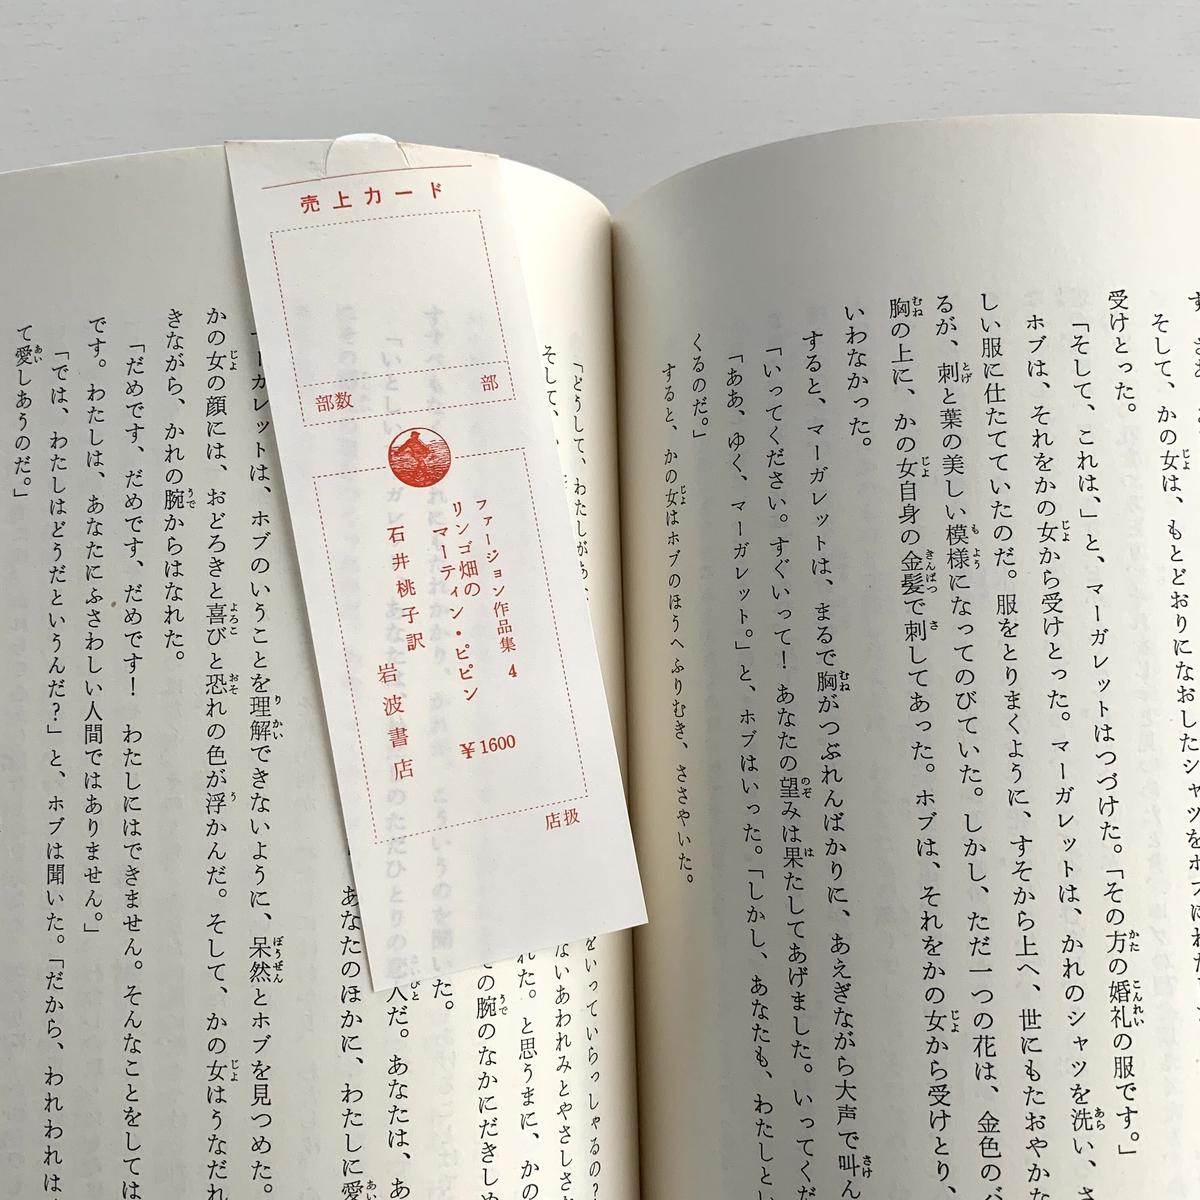 売上カード
部数
部
ファージョン作品集 4
リンゴ畑の
マーティン・ピピン
石井桃子訳
岩波書店
￥1600
店扱
そして、かの女は、もとどおりになおしたシャツを
受けとった。
「そして、これは、」と、マーガレットはつづけた。「その方の婚礼の服です。」
ホブは、それをかの女から受けとった。マーガレットは、かれのシャツを洗い、
しい服に仕たてていたのだ。服をとりまくように、すそから上へ、世にもたおやかな
るが、刺と葉の美しい模様になってのびていた。しかし、ただ一つの花は、金色のバ
胸の上に、かの女自身の金髪で刺してあった。ホブは、それをかの女から受けとり、
いわなかった。
すると、マーガレットは、まるで胸がつぶれんばかりに、あえぎながら大声で叫ん
「いってください。すぐいって！あなたの望みは果たしてあげました。いってくだ
「ああ、ゆく、マーガレット。」と、ホブはいった。「しかし、あなたも、わたしとい
くるのだ。」
すると、かの女はホブのほうへふりむき、ささやいた。
「どうして、わたしがあ
をいっていらっしゃるの？
そして、
ないあわれみとやさしさ
れた。と思うまに、かの
の腕のなかにだきしめ
た。
人だ。あなたは、あ
あなたのほかに、わたしに愛
ーガレットは、ホブのいうことを理解できないように、呆然とホブを見つめた。
かの女の顔には、おどろきと喜びと恐れの色が浮かんだ。そして、かの女はうなだれ
きながら、かれの腕からはなれた。
「だめです、だめです、だめです！ わたしにはできません。そんなことをしては
です。わたしは、あなたにふさわしい人間ではありません。」
「では、わたしはどうだというんだ？」と、ホブは聞いた。「だから、われわれは
て愛しあうのだ。」